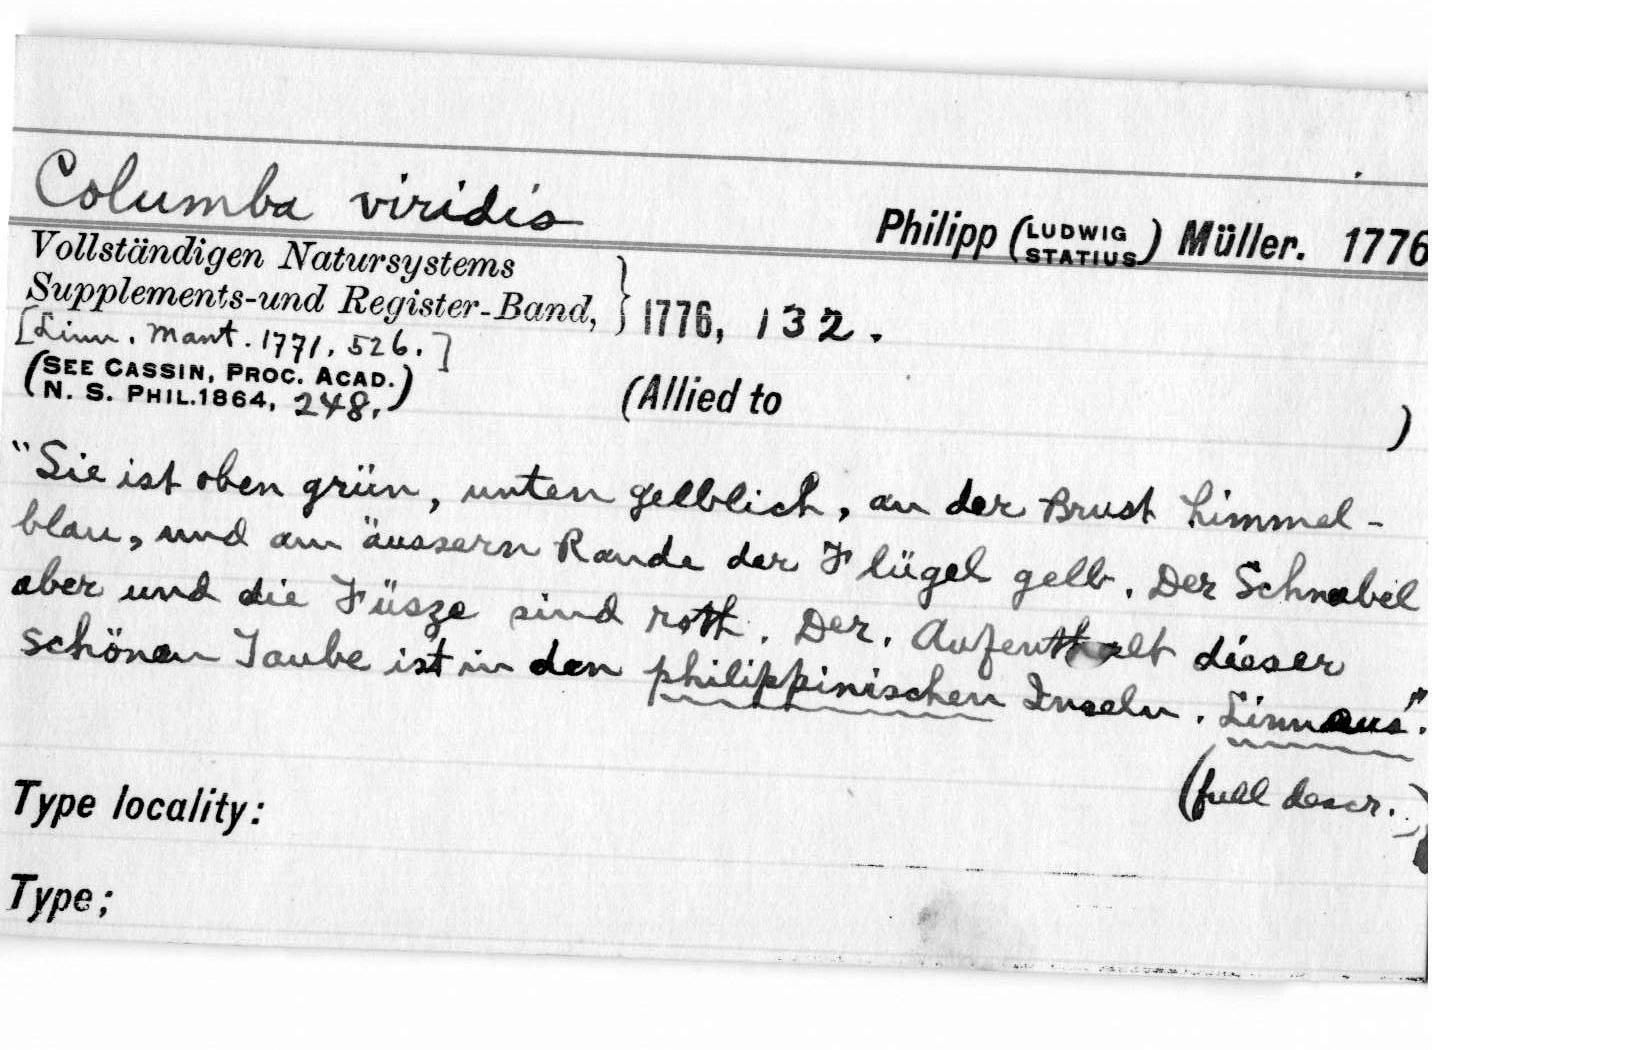 Columba viridis
Philipp (LUDWIG STATIUS) Müller. 1776
Vollständigen Natursystems
Supplements-und Register-Band, } 1776, 132.
[Linn. Mant. 1771, 526.]
(SEE CASSIN, PROC. ACAD.
N. S. PHIL. 1864, 248.)
(Allied to )
"Sie ist oben grün, unten gelblich, an der Brust himmel-
blau, und am äussern Rande der Flügel gelb. Der Schnabel
aber und die Füsze sind roth. Der. Aufenthalt dieser
schönen Taube ist in den philippinischen Inseln. Linnaus".
(full descr.)
Type locality:
Type;